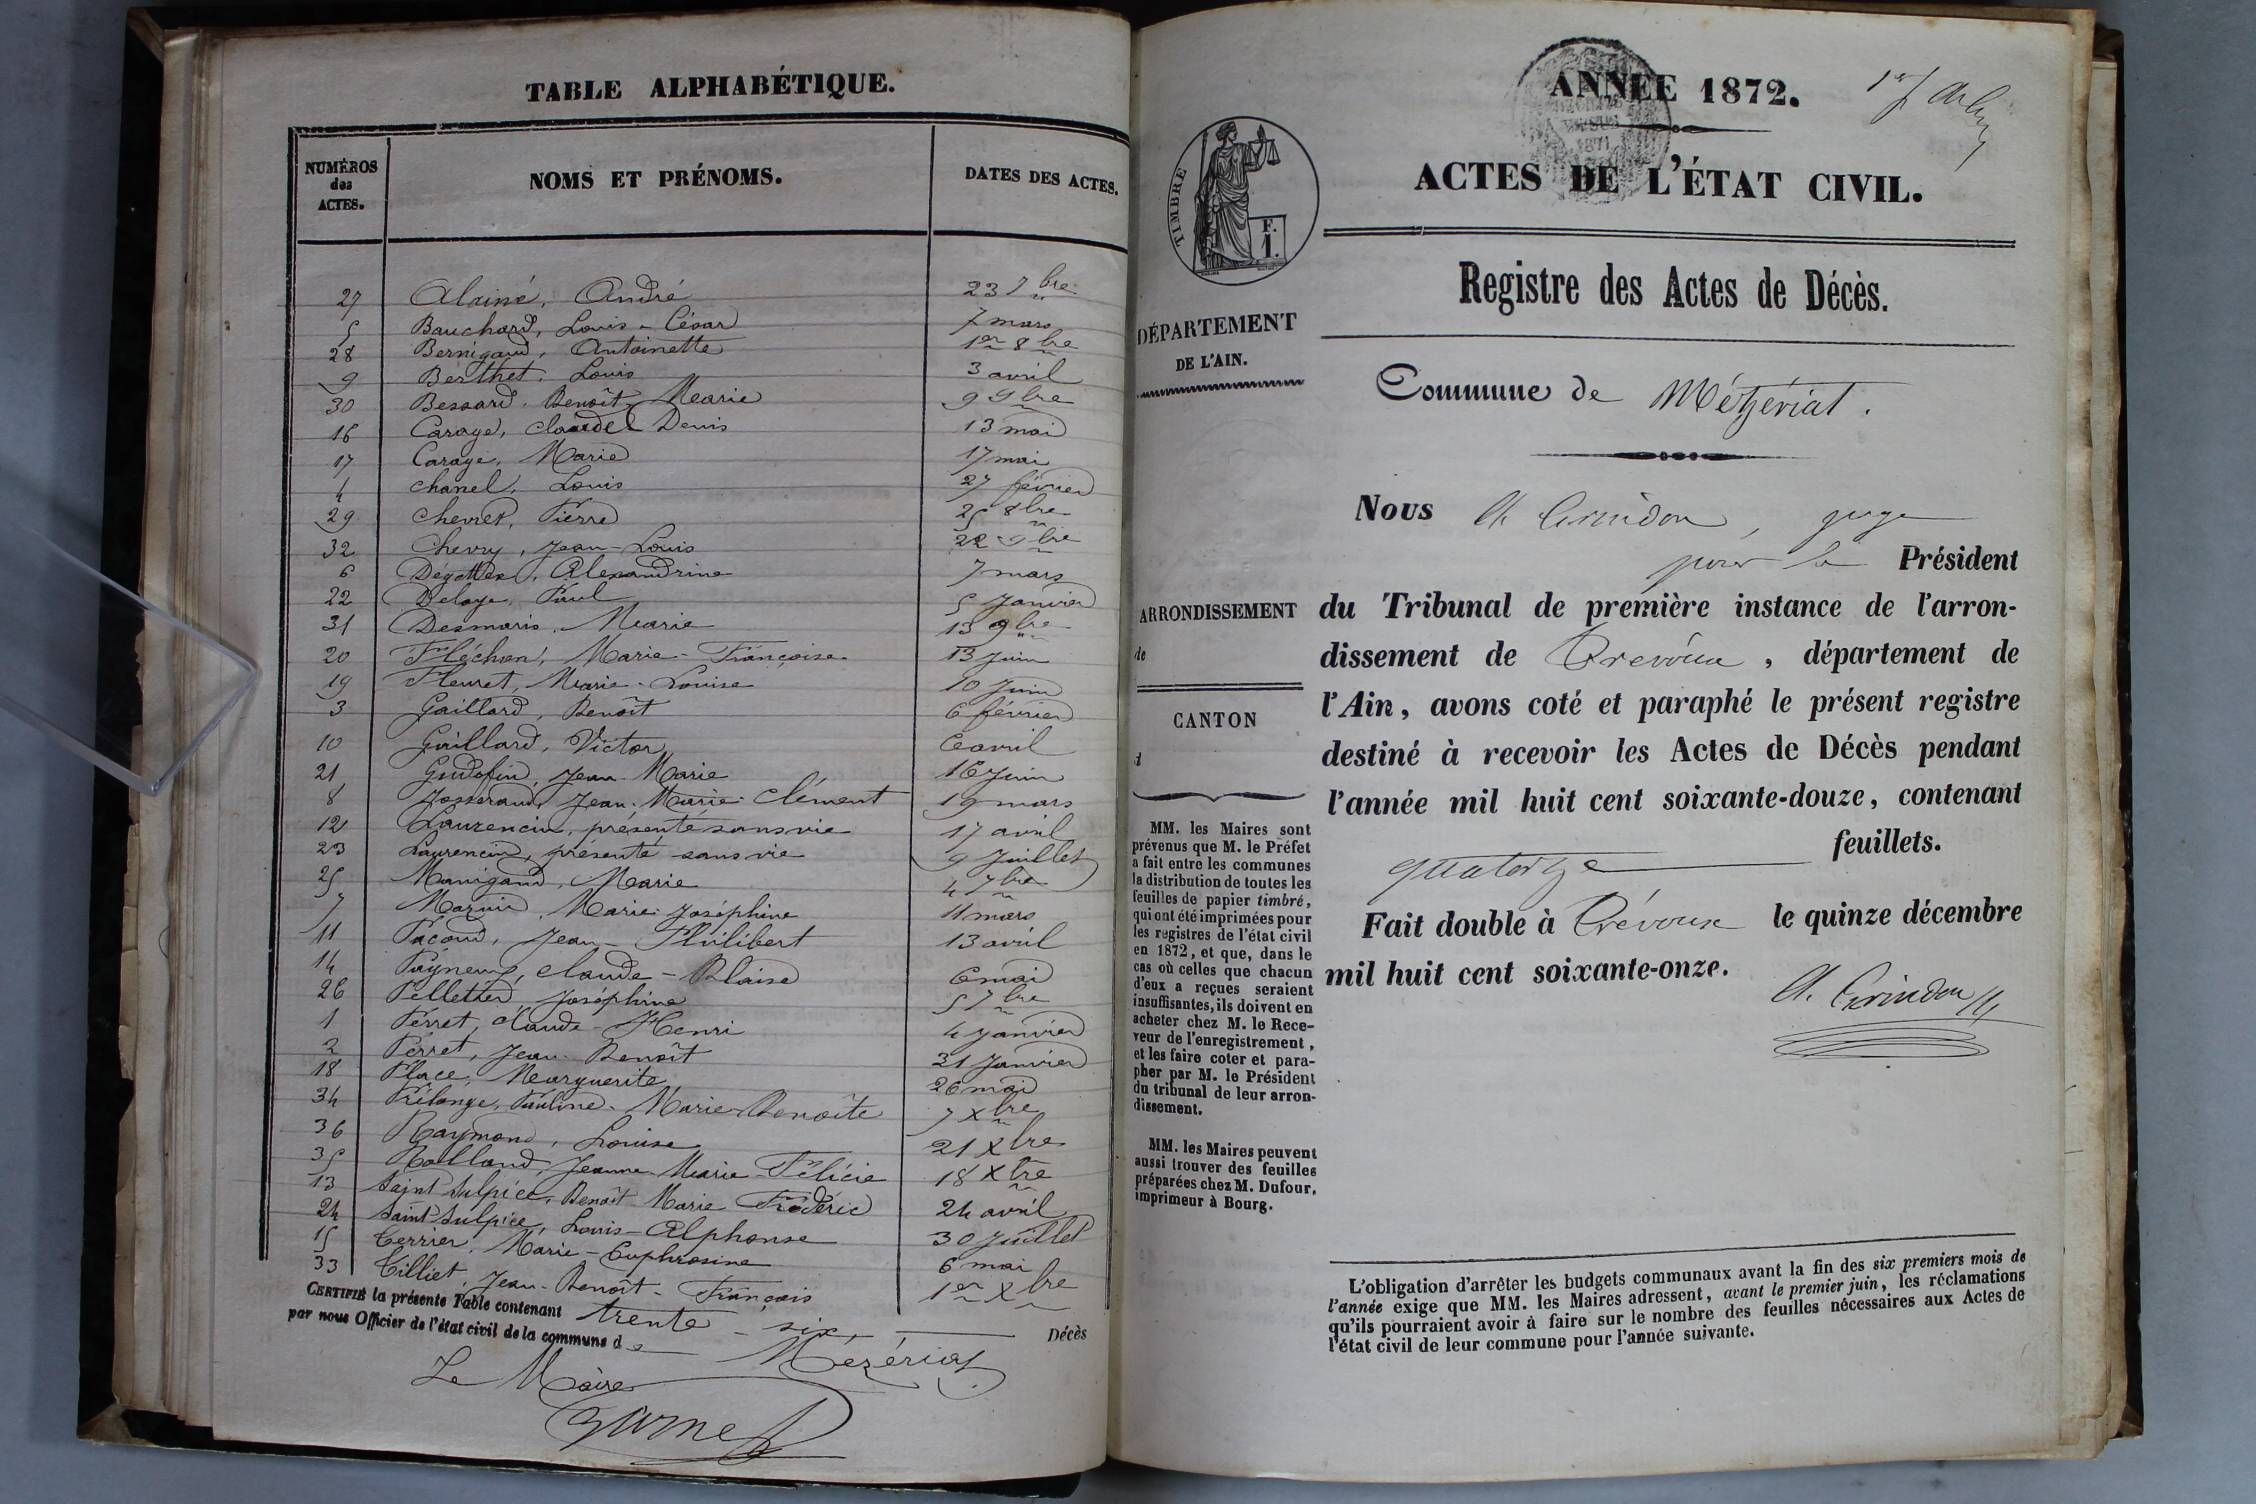 TABLE ALPHABÉTIQUE.
NUMÉROS des ACTES. NOMS ET PRÉNOMS. DATES DES ACTES.
27 Alainé, André 23 7bre
5 Bauchard, Louis-César 7 mars
28 Bernigaud, Antoinette 1er 8bre
9 Berthet, Louis 3 avril
30 Bessard, Benoît Marie 9 9bre
16 Carage, Claude Denis 13 mai
17 Carage, Marie 17 mai
4 Chanel, Louis 27 février
29 Chevret, Pierre 25 8bre
32 Chevry, Jean-Louis 22 9bre
6 Alexandrine 7 mars
22 Delaye, Paul 5 Janvier
31 Desmaris, Marie 13 9bre
20 Fléchon, Marie-Françoise 13 Juin
19 Fleuret, Marie-Louise 10 Juin
3 Gaillard, Benoît 6 février
10 Gaillard, Victor 6 avril
21 Godofin, Jean-Marie 16 Juin
8 Josserand, Jean-Marie-Clément 19 mars
12 Laurencin, présenté sans vie 17 avril
23 Laurencin, présenté sans vie 9 Juillet
25 Manigand, Marie 4 7bre
7 Marie-Joséphine 11 mars
11 Pacoud, Jean-Philibert 13 avril
14 Claude-Blaise 6 mai
26 Pelletier, Joséphine 5 7bre
1 Perret, Claude-Henri 4 Janvier
2 Perret, Jean-Benoît 31 Janvier
18 Place, Marguerite 26 mai
34 Prélonge, Pauline-Marie-Benoîte 7 Xbre
36 Raymond, Louise 21 Xbre
35 Rolland, Jeanne-Marie-Félicie 18 Xbre
13 Saint Sulpice, Benoît Marie Frédéric 24 avril
24 Saint Sulpice, Louis-Alphonse 30 Juillet
15 Terrier, Marie-Euphrosine 6 mai
33 Tilliet, Jean-Benoît-François 1er Xbre
CERTIFIÉ la présente Table contenant trente-six, Décès
par nous Officier de l'état civil de la commune de Mézériat.
Le Maire
ANNÉE 1872.
1871
ACTES DE L'ÉTAT CIVIL.
TIMBRE
F.
1.
Registre des Actes de Décès.
DÉPARTEMENT
DE L'AIN.
Commune de Mézériat.
Nous A. Grindon, juge
pour le Président
ARRONDISSEMENT
du Tribunal de première instance de l'arron-
de
dissement de Trévoux, département de
l'Ain, avons coté et paraphé le présent registre
CANTON
destiné à recevoir les Actes de Décès pendant
d
l'année mil huit cent soixante-douze, contenant
quatorze feuillets.
Fait double à Trévoux le quinze décembre
mil huit cent soixante-onze.
A. Grindon
MM. les Maires sont
prévenus que M. le Préfet
a fait entre les communes
la distribution de toutes les
feuilles de papier timbré,
qui ont été imprimées pour
les registres de l'état civil
en 1872, et que, dans le
cas où celles que chacun
d'eux a reçues seraient
insuffisantes, ils doivent en
acheter chez M. le Rece-
veur de l'enregistrement,
et les faire coter et para-
pher par M. le Président
du tribunal de leur arron-
dissement.
MM. les Maires peuvent
aussi trouver des feuilles
préparées chez M. Dufour,
imprimeur à Bourg.
L'obligation d'arrêter les budgets communaux avant la fin des six premiers mois de
l'année exige que MM. les Maires adressent, avant le premier juin, les réclamations
qu'ils pourraient avoir à faire sur le nombre des feuilles nécessaires aux Actes de
l'état civil de leur commune pour l'année suivante.